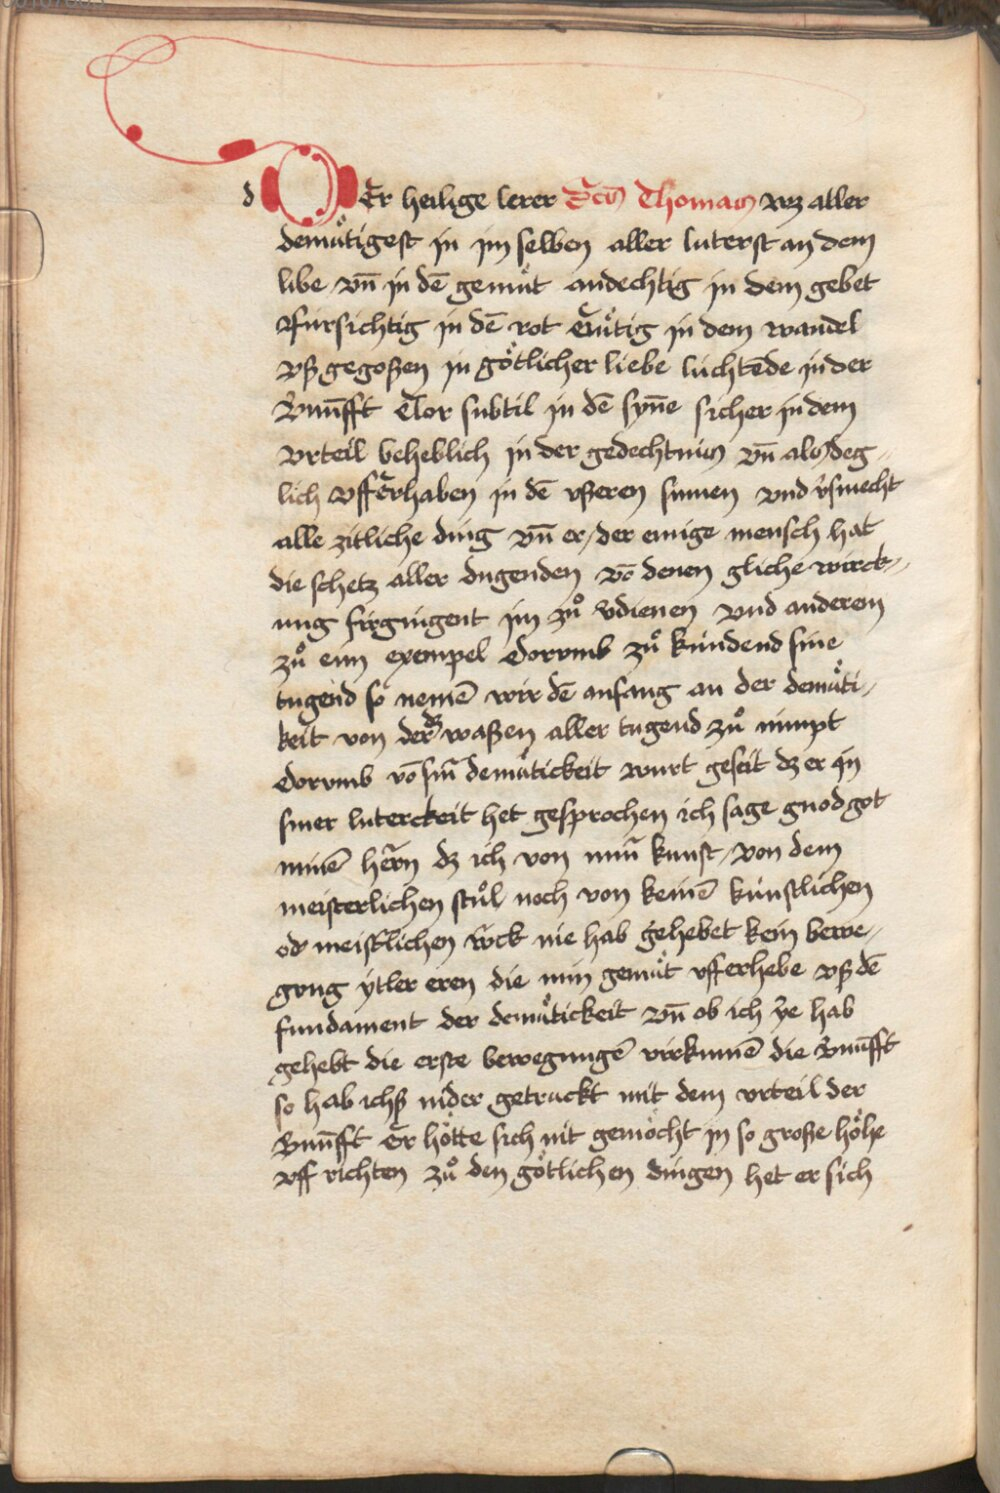 d DEr heilige lerer Sctus Thomas wz aller
demuͤtigest in im selben aller luterst an dem
libe vn̄ in dē gemuͤt andechtig in dem gebet
fursichtig in dē rot Guͤtig in dem wandel
vß gegoßen in goͤtlicher liebe luchtēde in der
v̉nu̅fft Clor subtil in dē syn̄e sicher in dem
vrteil beheblich in der gedechtnis vn̄ also deg„
lich vff erhaben in dē vßeren sinnen vnd v̉smecht
alle zitliche ding vn̄ er / der einige mensch hat
die schetz aller dugenden vō denen gliche wirck„
ung firgingent im zuͦ v̉dienen vnd anderem
zuͦ eim exempel Dorvmb zuͦ kündend sine
tugend so nemē wir dē anfang an der demuͤti„
keit von der dz waßen aller tugend zuͦ nimpt
Dorvmb vō sīn̉ demuͤtickeit wurt geseit dz er in
siner luterckeit het gesprochen ich sage gnod got
minē herrn dz ich von min̉ kunst / von dem
meisterlichen stuͦl noch von keinē künstlichen
od̉ meist̉lichen w̉ck nie hab gehebet kein bewe„
gvng ytler eren die min gemuͤt vfferhebe vß dē
fundament der demuͤtickeit vn̄ ob ich ye hab
gehebt die erste bewegungē vrkumē die v̉nu̅fft
so hab ichß nider getruckt mit dem vrteil der
v̉nu̅fft Er hoͤtte sich nit gemoͤcht in so große hoͤhe
vff richten zuͦ den goͤtlichen dingen het er sich